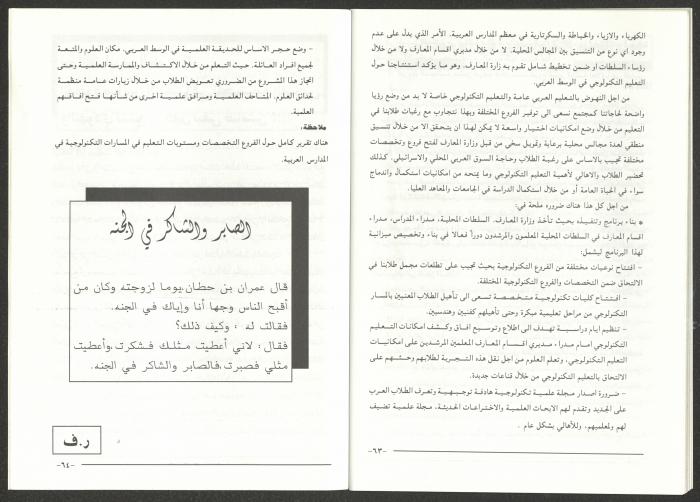 الكهرباء والازياء والخياطة والسكرتارية في معظم المدارس العربية. الأمر الذي يدل على عدم
وجود اي نوع من التنسيق بين المجالس المحلية. لا من خلال مديري اقسام المعارف ولا من خلال
رؤساء السلطات او ضمن تخطيط شامل تقوم به زارة المعارف. وهو ما يؤكد استنتاجنا حول
التعليم التكنولوجي في الوسط العربي.
من اجل النهوض بالتعليم العربي عامة والتعليم التكنولوجي خاصة لا بد من وضع رؤيا
واضحة لحاجاتنا كمجتمع نسعى الى توفير الفروع المختلفة وبهذا نتجاوب مع رغبات طلابنا في
التعليم من خلال وضع امكانيات اختيار واسعة لا يمكن لهذا ان يتحقق الا من خلال تنسيق
منطقي لعدة مجالس محلية برعاية وتمويل سخي من قبل وزارة المعارف لفتح فروع وتخصصات
مختلفة تجيب بالاساس على رغبة الطلاب وحاجة السوق العربي المحلي والاسرائيلي. كذلك
تحضير الطلاب والاهالي لأهمية التعليم التكنولوجي وما يمنحه من امكانيات استكمال واندماج
سواء في الحياة العامة أو من خلال استكمال الدراسة في الجامعات والمعاهد العليا.
من اجل كل هذا هناك ضروره ملحة في:
* بناء برنامج وتنفيذه بحيث تأخذ وزارة المعارف. السلطات المحلية، مدراء المدراس، مدراء
اقسام المعارف في السلطات المحلية المعلمون والمرشدون دوراً فعالا في بناء وتخصيص ميزانية
لهذا البرنامج ليشمل:
– افتتاح نوعيات مختلفة من الفروع التكنولوجية بحيث تجيب على تطلعات مجمل طلابنا في
الالتحاق ضمن التخصصات والفروع التكنولوجية المختلفة.
– افتتاح كليات تكنولوجية متخصصة تسعى الى تأهيل الطلاب المعنيين بالمسار
التكنولوجي من مراحل تعليمية مبكرة وحتى تأهيلهم كفنيين وهندسيين.
– تنظيم ايام دراسية تهدف الى اطلاع وتوسيع افاق وكشف امكانات التعليم
التكنولوجي امام مدراء مديري اقسام المعارف المعلمين المرشدين على امكانيات
التعليم التكنولوجي، وتعلم العلوم من اجل نقل هذه التجربة لطلابهم وحثهم على
الالتحاق بالتعليم التكنولوجي من خلال قناعات جديدة.
– ضرورة اصدار مجلة علمية تكنولوجية هادفة توجيهية وتعرف الطلاب العرب
على الجديد وتقدم لهم الابحاث العلمية والاختراعات الحديثة، مجلة علمية تضيف
لهم ولمعلميهم، وللأهالي بشكل عام .
-٦٣-
– وضع حجر الاساس للحديقة العلمية في الوسط العربي. مكان العلوم والمتعة
لجميع افراد العائلة. حيث التعلم من خلال الاكتشاف والممارسة العلمية وحتى
انجاز هذا المشروع من الضروري تعويض الطلاب من خلال زيارات عامة منظمة
لحدائق العلوم. المتاحف العلمية ومرافق علمية اخرى من شأنها فتح افاقهم
العلمية.
ملاحظة:
هناك تقرير كامل حول الفروع التخصصات ومستويات التعليم في المسارات التكنولوجية في
المدارس العربية.
الصابر والشاكر في الجنه
قال عمران بن حطان،يوما لزوجته وكان من
أقبح الناس وجها أنا وإياك في الجنه.
فقالت له : وكيف ذلك؟
فقال: لاني أعطيت مثلك فشكرت،وأعطيت
مثلي فصبرت،فالصابر والشاكر في الجنه.
ر.ف
-٦٤-